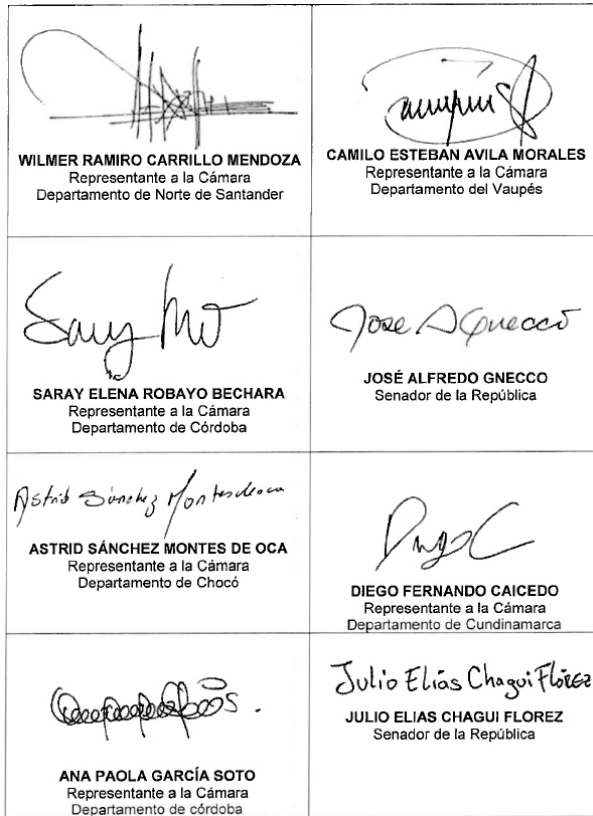 WILMER RAMIRO CARRILLO MENDOZA
Representante a la Cámara
Departamento de Norte de Santander
CAMILO ESTEBAN AVILA MORALES
Representante a la Cámara
Departamento del Vaupés
SARAY ELENA ROBAYO BECHARA
Representante a la Cámara
Departamento de Córdoba
Jose A Gnecco
JOSÉ ALFREDO GNECCO
Senador de la República
Astrid Sánchez Montesdeoca
ASTRID SÁNCHEZ MONTES DE OCA
Representante a la Cámara
Departamento de Chocó
DIEGO FERNANDO CAICEDO
Representante a la Cámara
Departamento de Cundinamarca
ANA PAOLA GARCÍA SOTO
Representante a la Cámara
Departamento de córdoba
Julio Elías Chagui Flórez
JULIO ELIAS CHAGUI FLOREZ
Senador de la República